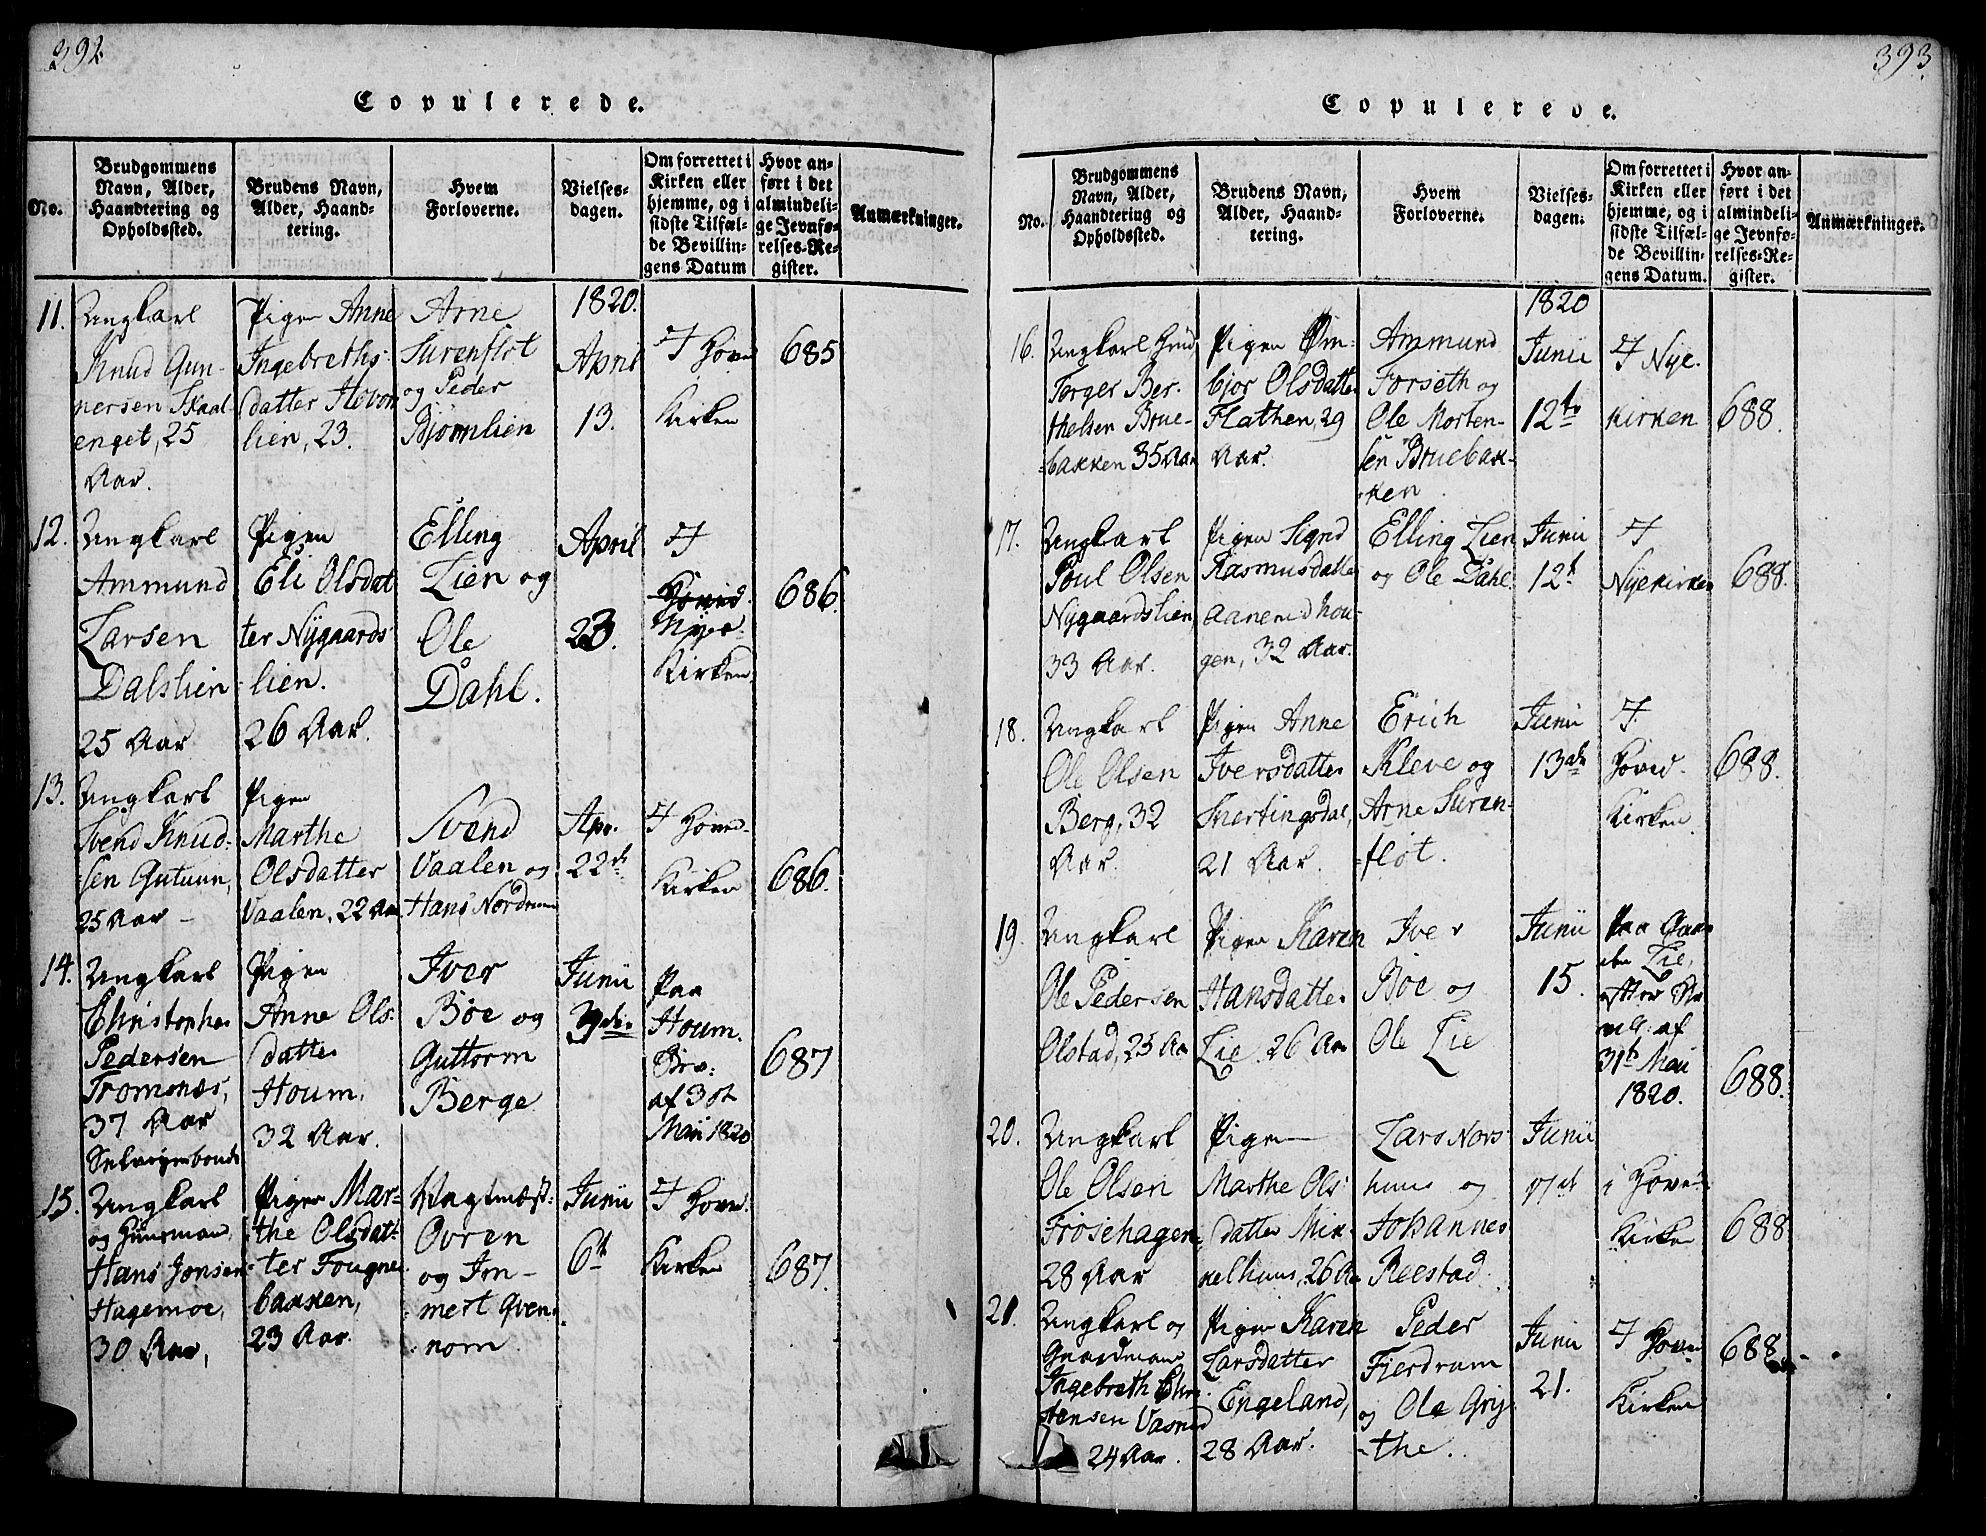 392
Copulerede.
No.
Brudgommens
Navn, Alder,
Haandtering og
Opholdssted.
Brudens Navn,
Alder, Haand-
tering.
Hvem
Forloverne.
Vielses-
dagen.
Om forrettet i
Kirken eller
hjemme, og i
sidste Tilfæl-
de Bevillin-
gens Datum
Hvor an-
ført i det
almindeli-
ge Jevnfø-
relses-Re-
gister.
Anmærkninger.
11.
Ungkarl
Knud Gun-
nersen Skaal-
enget, 25
Aar.
Pigen Anne
Ingebreths-
datter Hovon
lien, 23.
Arne
Surenflot
og Peder
Bjørnlien
1820.
April
13.
I Hoved
Kirken
685
12.
Ungkarl
Ammund
Larsen
Dalslien
25 Aar
Pigen
Eli Olsdat
ter Nygaards-
lien.
26 Aar.
Elling
Lien og
Ole
Dahl.
April
23.
I
Hoved
Nye-
Kirken
686.
13.
Ungkarl
Svend Knud-
sen Gutuun,
25 Aar
Pigen
Marthe
Olsdatter
Vaalen, 22 Aar
Svend
Vaalen og
Hans Nordrum
Apr.
22de
I Hoved-
Kirken
686.
14.
Ungkarl
Christopher
Pedersen
Tromsnæs,
37 Aar
Selveyerbonde
Pigen
Anne Ols-
datter
Houm,
32 Aar.
Iver
Böe og
Guttorm
Berge
Junii
3die
Paa
Houm.
Brv:
af 30t
Maii 1820
687
15.
Ungkarl
og Huusmand
Hans Jonsen
Hagemoe,
30 Aar,
Pigen Mar-
the Olsdat-
ter Fougner
bakken,
23 Aar.
Vagtmæst.
Ovren
og Im-
mert Qven-
nom.
Junii
6t
I Hoved
Kirken
687.
393.
Copulerede.
No.
Brudgommens
Navn, Alder,
Haandtering og
Opholdssted.
Brudens Navn,
Alder, Haand-
tering.
Hvem
Forloverne.
Vielses-
dagen.
Om forrettet i
Kirken eller
hjemme, og i
sidste Tilfæl-
de Bevillin-
gens Datum.
Hvor an-
ført i det
almindeli-
ge Jevnfø-
relses-Re-
gister.
Anmærkninger.
16.
Ungkarl Gud
Torger Ber-
thelsen Brue-
bakken 35 Aar
Pigen Øm-
bjor Olsdatter
Flathen, 29
Aar.
Ammund
Forseth og
Ole Morten-
sen Bruebak-
ken.
1820
Junii
12te
I Nye-
Kirken
688.
17.
Ungkarl
Poul Olsen
Nygaardslien,
33 Aar.
Pigen Signd
Rasmusdatter
Aanerudhou-
gen, 32 Aar.
Elling Lien
og Ole Dahl
Junii
12t
I
Nyekirken
688.
18.
Ungkarl
Ole Olsen
Berg, 32
Aar.
Pigen Anne
Iversdatter
Snertingsdal,
21 Aar.
Erich
Kleve og
Arne Suren-
fløt.
Junii
13de
I
Hoved-
Kirken
688.
19.
Ungkarl
Ole Pedersen
Olstad, 25 Aar
Pigen Karen
Hansdatter
Lie. 26 Aar
Iver
Böe og
Ole Lie
Junii
15.
Paa Gaar
den Lie,
efter
af
31te Maii
1820.
688.
20.
Ungkarl
Ole Olsen
Frøisehagen,
28 Aar
Pigen
Marthe Ols-
datter Mik-
kelhuus, 26 Aar
Lars Nors-
huus og
Johannes
Reestad.
Junii
17de
i Hoved-
Kirken
688
21.
Ungkarl og
Gaardmand
Ingebreth Chri-
stensen Vasrud
24 Aar.
Pigen Karen
Larsdatter
Engeland,
28 Aar.
Peder
Fierdrum
og Ole Gry-
the.
Junii
21.
I Hoved
Kirken
688.